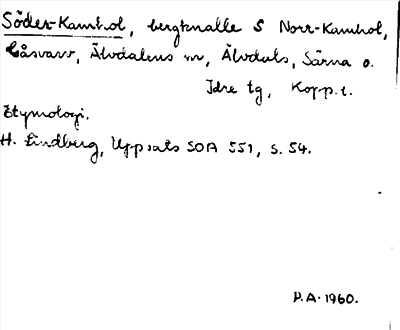 Söder-Kamhol, bergknalle S Norr-Kamhol,
Åsvarv, Älvdalens sn, Älvdals, Särna o.
Idre tg, Kopp. l.
Etymologi.
H. Lindberg, Uppsats SOA 551, s. 54.
H.A. 1960.